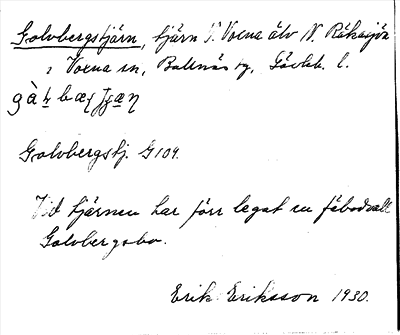 Golvbergstjärn, tjärn S. Voxna älv N. Råkasjön
i Voxna sn, Bollnäs tg, Gävleb. l.
Golvbergstj. G 104.
Vid tjärnen har förr legat en fäbodvall
Golvbergsbo.
Erik Eriksson 1930.